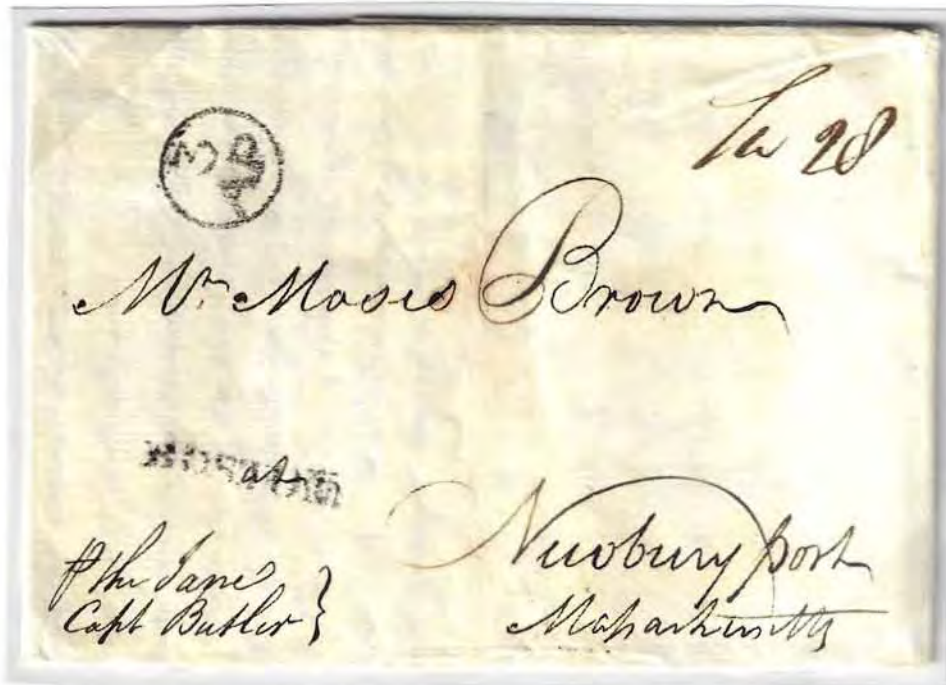 28
Mr. Moses Brown
BOSTON
at
Newbury port
Massachusetts
⅌ the Jane
Capt Butler